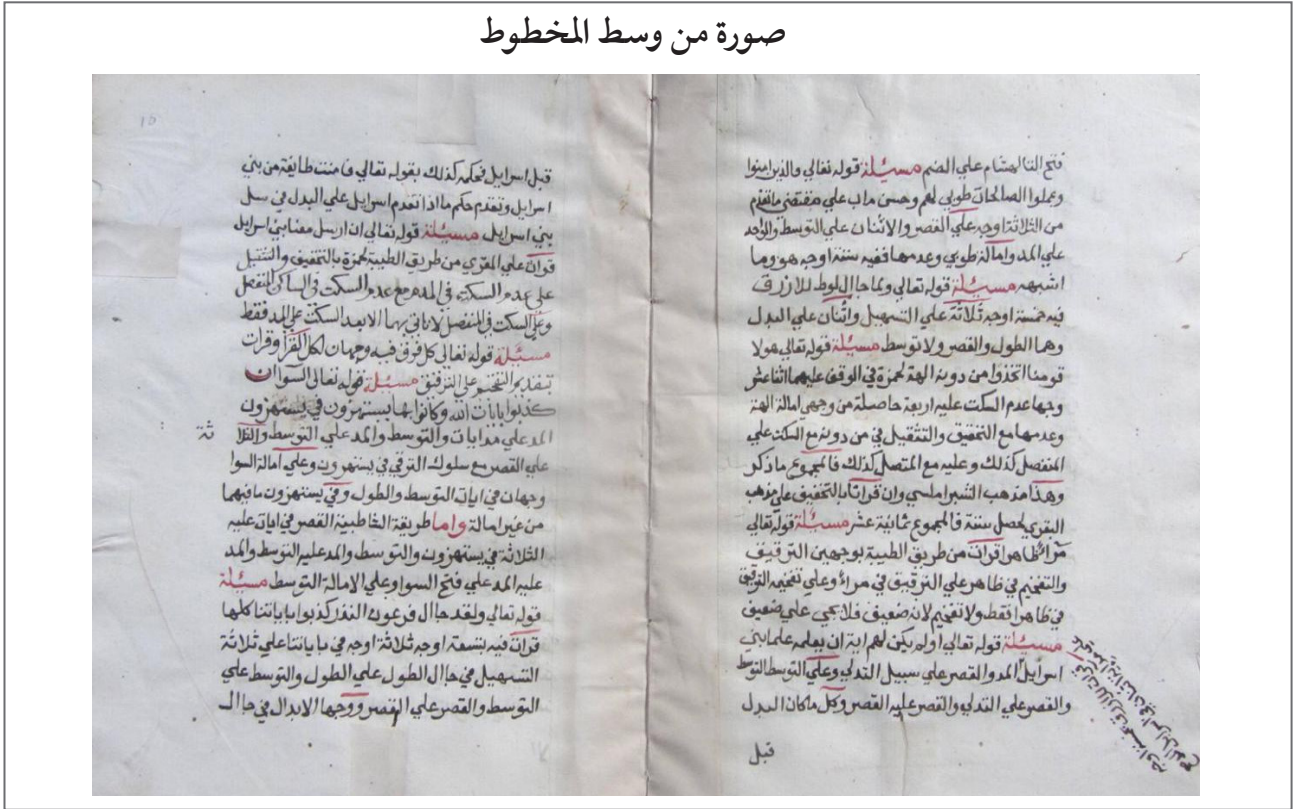 صورة من وسط المخطوط
فتح التا لهشام علي الضم مسيلة قوله تعالي والذين امنوا
وعملوا الصالحات طوبي لهم وحسن ماب علي مقتضي ماتقدم
من الثلاثة اوجه علي القصر والاثنان علي التوسط والواحد
علي المد وامالة طوبي وعدمها ففيه ستة اوجه هو وما
اشبهه مسيلة قوله تعالي ولما جاال لوط للازرق
فيه خمسة اوجه ثلاثة علي التسهيل واثنان علي البدل
وهما الطول والقصر ولا توسط مسيلة قوله تعالي هولا
قومنا اتخذوا من دونه الهة لحمزة في الوقف عليهما اثنا عشر
وجها عدم السكت عليه اربعة حاصلة من وجهي امالة الهة
وعدمها مع التحقيق والتثقيل في من دونه مع السكت علي
المنفصل كذلك وعليه مع المتصل كذلك فالمجموع ما ذكر
وهذا مذهب الشبراملسي وان قراتا بالتخفيف علي مذهب
البقري يحصل ستة فالمجموع ثمانية عشر مسيلة قوله تعالي
مرآء ظاهرا قرات من طريق الطيبة بوجهين الترقيق
والتفخيم في ظاهر علي الترقيق في مراء وعلي تفخيمه الترقيق
في ظاهرا فقط ولا تفخيم لانه ضعيف فلا يجي علي ضعيف
مسيلة قوله تعالي اوله يكن لهم اية ان يعلمه علما بني
اسرايل المد والقصر علي سبيل التدلي وعلي التوسط التوسط
والقصر علي التدلي والقصر عليه القصر وكل ما كان البدل
قبل
قبل اسرايل فحكمه كذلك بقوله تعالي فامنت طايفة من بني
اسرايل وتقدم حكم ما اذا تقدم اسرايل علي البدل في سل
بني اسرايل مسيلة قوله تعالي ان ارسل معنا بني اسرايل
قرات علي المقري من طريق الطيبة لحمزة بالتخفيف والتثقيل
علي عدم السكت في المد مع عدم السكت في الساكن المنفصل
وعلي السكت في المنفصل لاناتي بهما الابعد السكت علي المد فقط
مسيلة قوله تعالي كل فرق فيه وجهان لكل القرا وقرات
بتقديم التفخيم علي الترقيق مسيلة قوله تعالي السوا ان
كذبوا بايات الله وكانوا بها يستهزون في يستهزون
المد علي مد ايات والتوسط والمد علي التوسط والثلا
ثة
علي القصر مع سلوك الترقي في يستهزون وعلي امالة السوا
وجهان في ايات التوسط والطول وفي يستهزون ما فيهما
من غير امالة واما طريقة الشاطبية القصر في ايات عليه
الثلاثة في يستهزون والتوسط والمد عليه التوسط والمد
عليه المد علي فتح السوا وعلي الامالة التوسط مسيلة
قوله تعالي ولقد جاال فرعون النذر كذبوا باياتنا كلها
قرات فيه بتسعة اوجه ثلاثة اوجه في باياتنا علي ثلاثة
التسهيل في جاال الطول علي الطول والتوسط علي
التوسط والقصر علي القصر ووجها الابدال في جاال